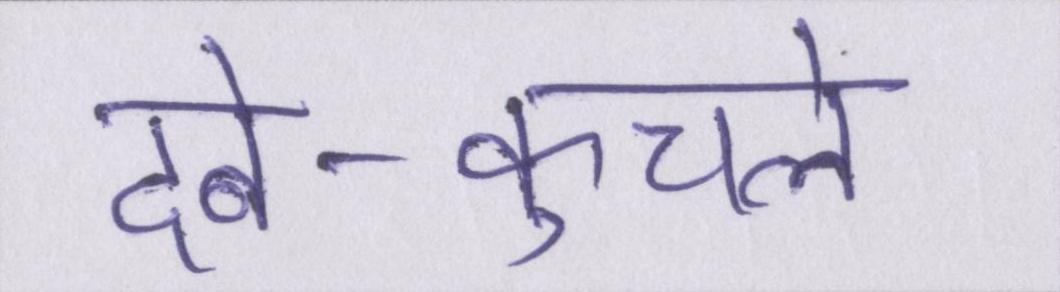 दबे-कुचले